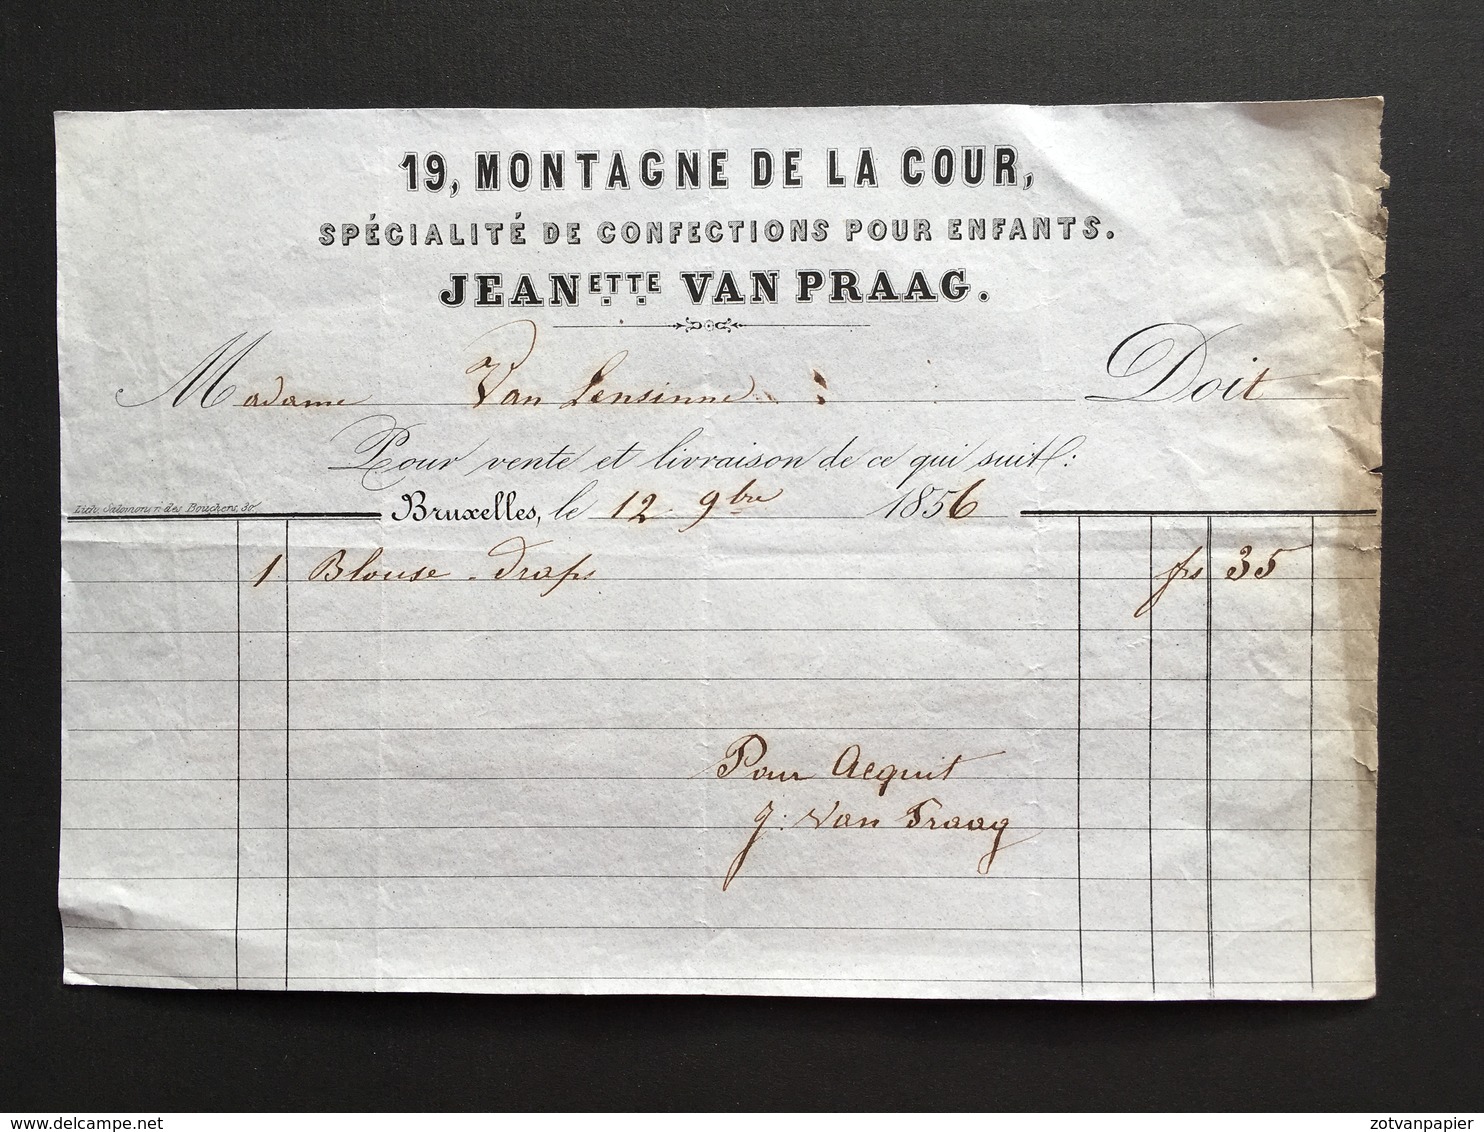 19, MONTAGNE DE LA COUR,
SPÉCIALITÉ DE CONFECTIONS POUR ENFANTS.
JEANETTE VAN PRAAG.
Madame Van Lensinne Doit
Pour vente et livraison de ce qui suit:
Lith. Salomon, r. des Bouchers, 30
Bruxelles, le 12 9bre 1856
1 Blouse - Draps frs 35
Pour Acquit
J. Van Praag
delcampe.net
zotvanpapier